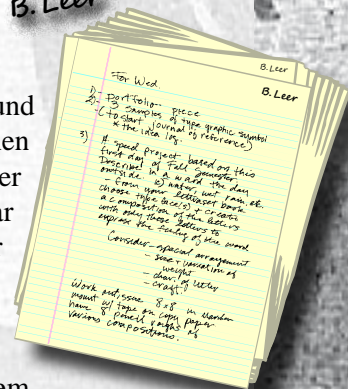 B. Leer
B. Leer
B. Leer
For Wed.
1) - Portfolio piece
2) - 3 samples of type graphic symbol
(to start journal of reference)
* the idea log.
3) A speed project based on this
first day of Fall Semester
Describe in a word the day
outside. ex) water, wet, rain, etc.
- From your letraset book
choose type face(s) & create
a composition of the letters
with only those letters to
express the feeling of the word
Consider - spacial arrangement
- size & variation of
weight
- char. of letter
- craft!
Work out issue 8x8 in
mount w/ tape on copy paper
have 8 pencil roughs of
various compositions.
und